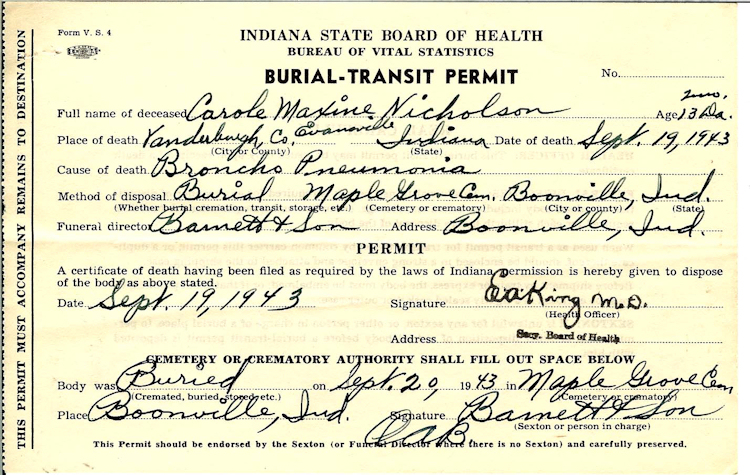 THIS PERMIT MUST ACCOMPANY REMAINS TO DESTINATION
Form V. S. 4
INDIANA STATE BOARD OF HEALTH
BUREAU OF VITAL STATISTICS
BURIAL-TRANSIT PERMIT
No.
Full name of deceased Carole Maxine Nicholson Age 2 mo. 13 Da.
Place of death Vanderburgh, Co. Evansville Indiana Date of death Sept. 19, 1943
(City or County) (State)
Cause of death Broncho Pneumonia
Method of disposal Burial Maple Grove Cem. Boonville, Ind.
(Whether burial cremation, transit, storage, etc.) (Cemetery or crematory) (City or county) (State)
Funeral director Barnett & Son Address Boonville, Ind.
PERMIT
A certificate of death having been filed as required by the laws of Indiana permission is hereby given to dispose
of the body as above stated.
Date Sept. 19, 1943 Signature EaKing M.D.
(Health Officer)
Address Secy. Board of Health
CEMETERY OR CREMATORY AUTHORITY SHALL FILL OUT SPACE BELOW
Body was Buried on Sept. 20, 1943 in Maple Grove Cem
(Cremated, buried, stored, etc.) (Cemetery or crematory)
Place Boonville, Ind. Signature Barnett & Son
(Sexton or person in charge)
This Permit should be endorsed by the Sexton (or Funeral Director where there is no Sexton) and carefully preserved.